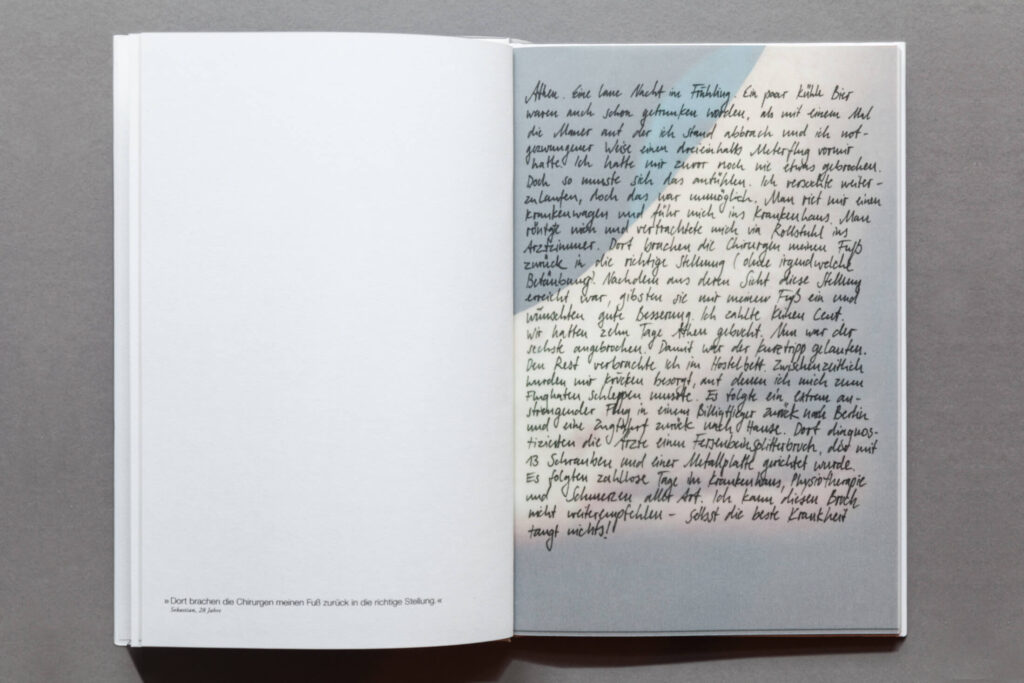 »Dort brachen die Chirurgen meinen Fuß zurück in die richtige Stellung.«
Sebastian, 28 Jahre
Athen. Eine laue Nacht im Frühling. Ein paar kühle Bier
waren auch schon getrunken worden, als mit einem Mal
die Mauer auf der ich stand abbrach und ich not-
gezwungener Weise einen dreieinhalb Meterflug vor mir
hatte. Ich hatte mir zuvor noch nie etwas gebrochen.
Doch so musste sich das anfühlen. Ich versuchte weiter-
zulaufen, doch das war unmöglich. Man rief mir einen
Krankenwagen und fuhr mich ins Krankenhaus. Man
röntgte mich und verfrachtete mich via Rollstuhl ins
Arztzimmer. Dort brachen die Chirurgen meinen Fuß
zurück in die richtige Stellung (ohne irgendwelche
Betäubung! Nachdem aus deren Sicht diese Stellung
erreicht war, gipsten sie mir meinen Fuß ein und
wünschten gute Besserung. Ich zahlte keinen Cent.
Wir hatten zehn Tage Athen gebucht. Nun war der
sechste angebrochen. Damit war der Kurztripp gelaufen.
Den Rest verbrachte ich im Hostelbett. Zwischenzeitlich
wurden mir Krücken besorgt, auf denen ich mich zum
Flughafen schleppen musste. Es folgte ein extrem an-
strengender Flug in einem Billigflieger zurück nach Berlin
und eine Zugfahrt zurück nach Hause. Dort diagnos-
tizierten die Ärzte einen Fersenbeinsplitterbruch, der mit
13 Schrauben und einer Metallplatte gerichtet wurde.
Es folgten zahllose Tage im Krankenhaus, Physiotherapie
und Schmerzen aller Art. Ich kann diesen Bruch
nicht weiterempfehlen – selbst die beste Krankheit
taugt nichts!